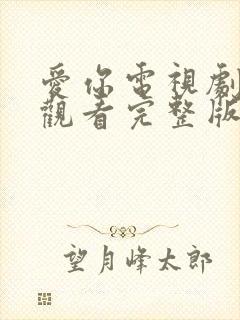 愛你電視劇
觀看完整版
望月峰太郎